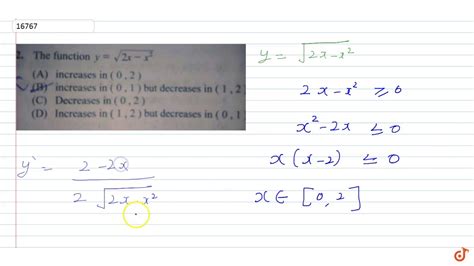 16767
2. The function y = √(2x − x²)
(A) increases in ( 0 , 2 )
(B) increases in ( 0 , 1 ) but decreases in ( 1 , 2
(C) Decreases in ( 0 , 2 )
(D) Increases in ( 1 , 2 ) but decreases in ( 0 , 1 )
y = √(2x − x²)
2x − x² ≥ 0
x² − 2x ≤ 0
x ( x − 2 ) ≤ 0
x ∈ [ 0 , 2 ]
y' = (2 − 2x) / (2 √(2x x²))